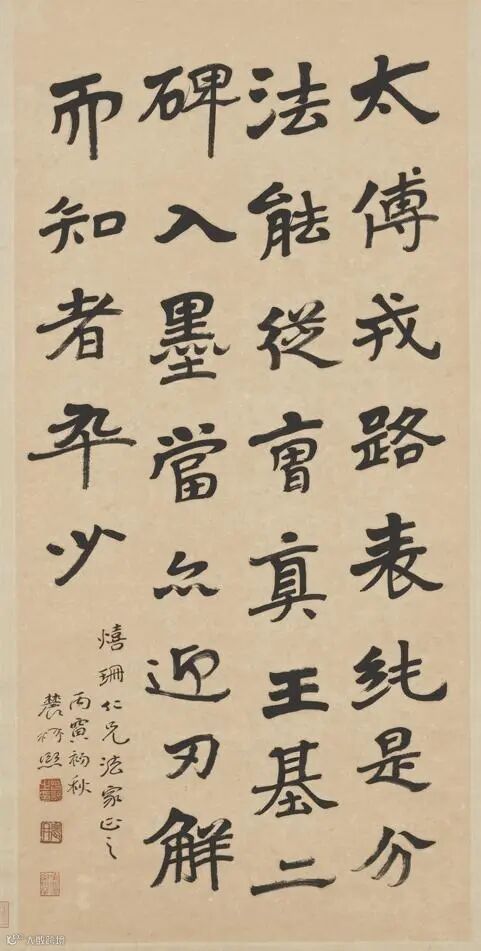 太傅戎路表純是分
法能從曺真王基二
碑入墨當亦迎刃解
而知者卒少
熺珊仁兄法家正之
丙寅初秋
農髯熙